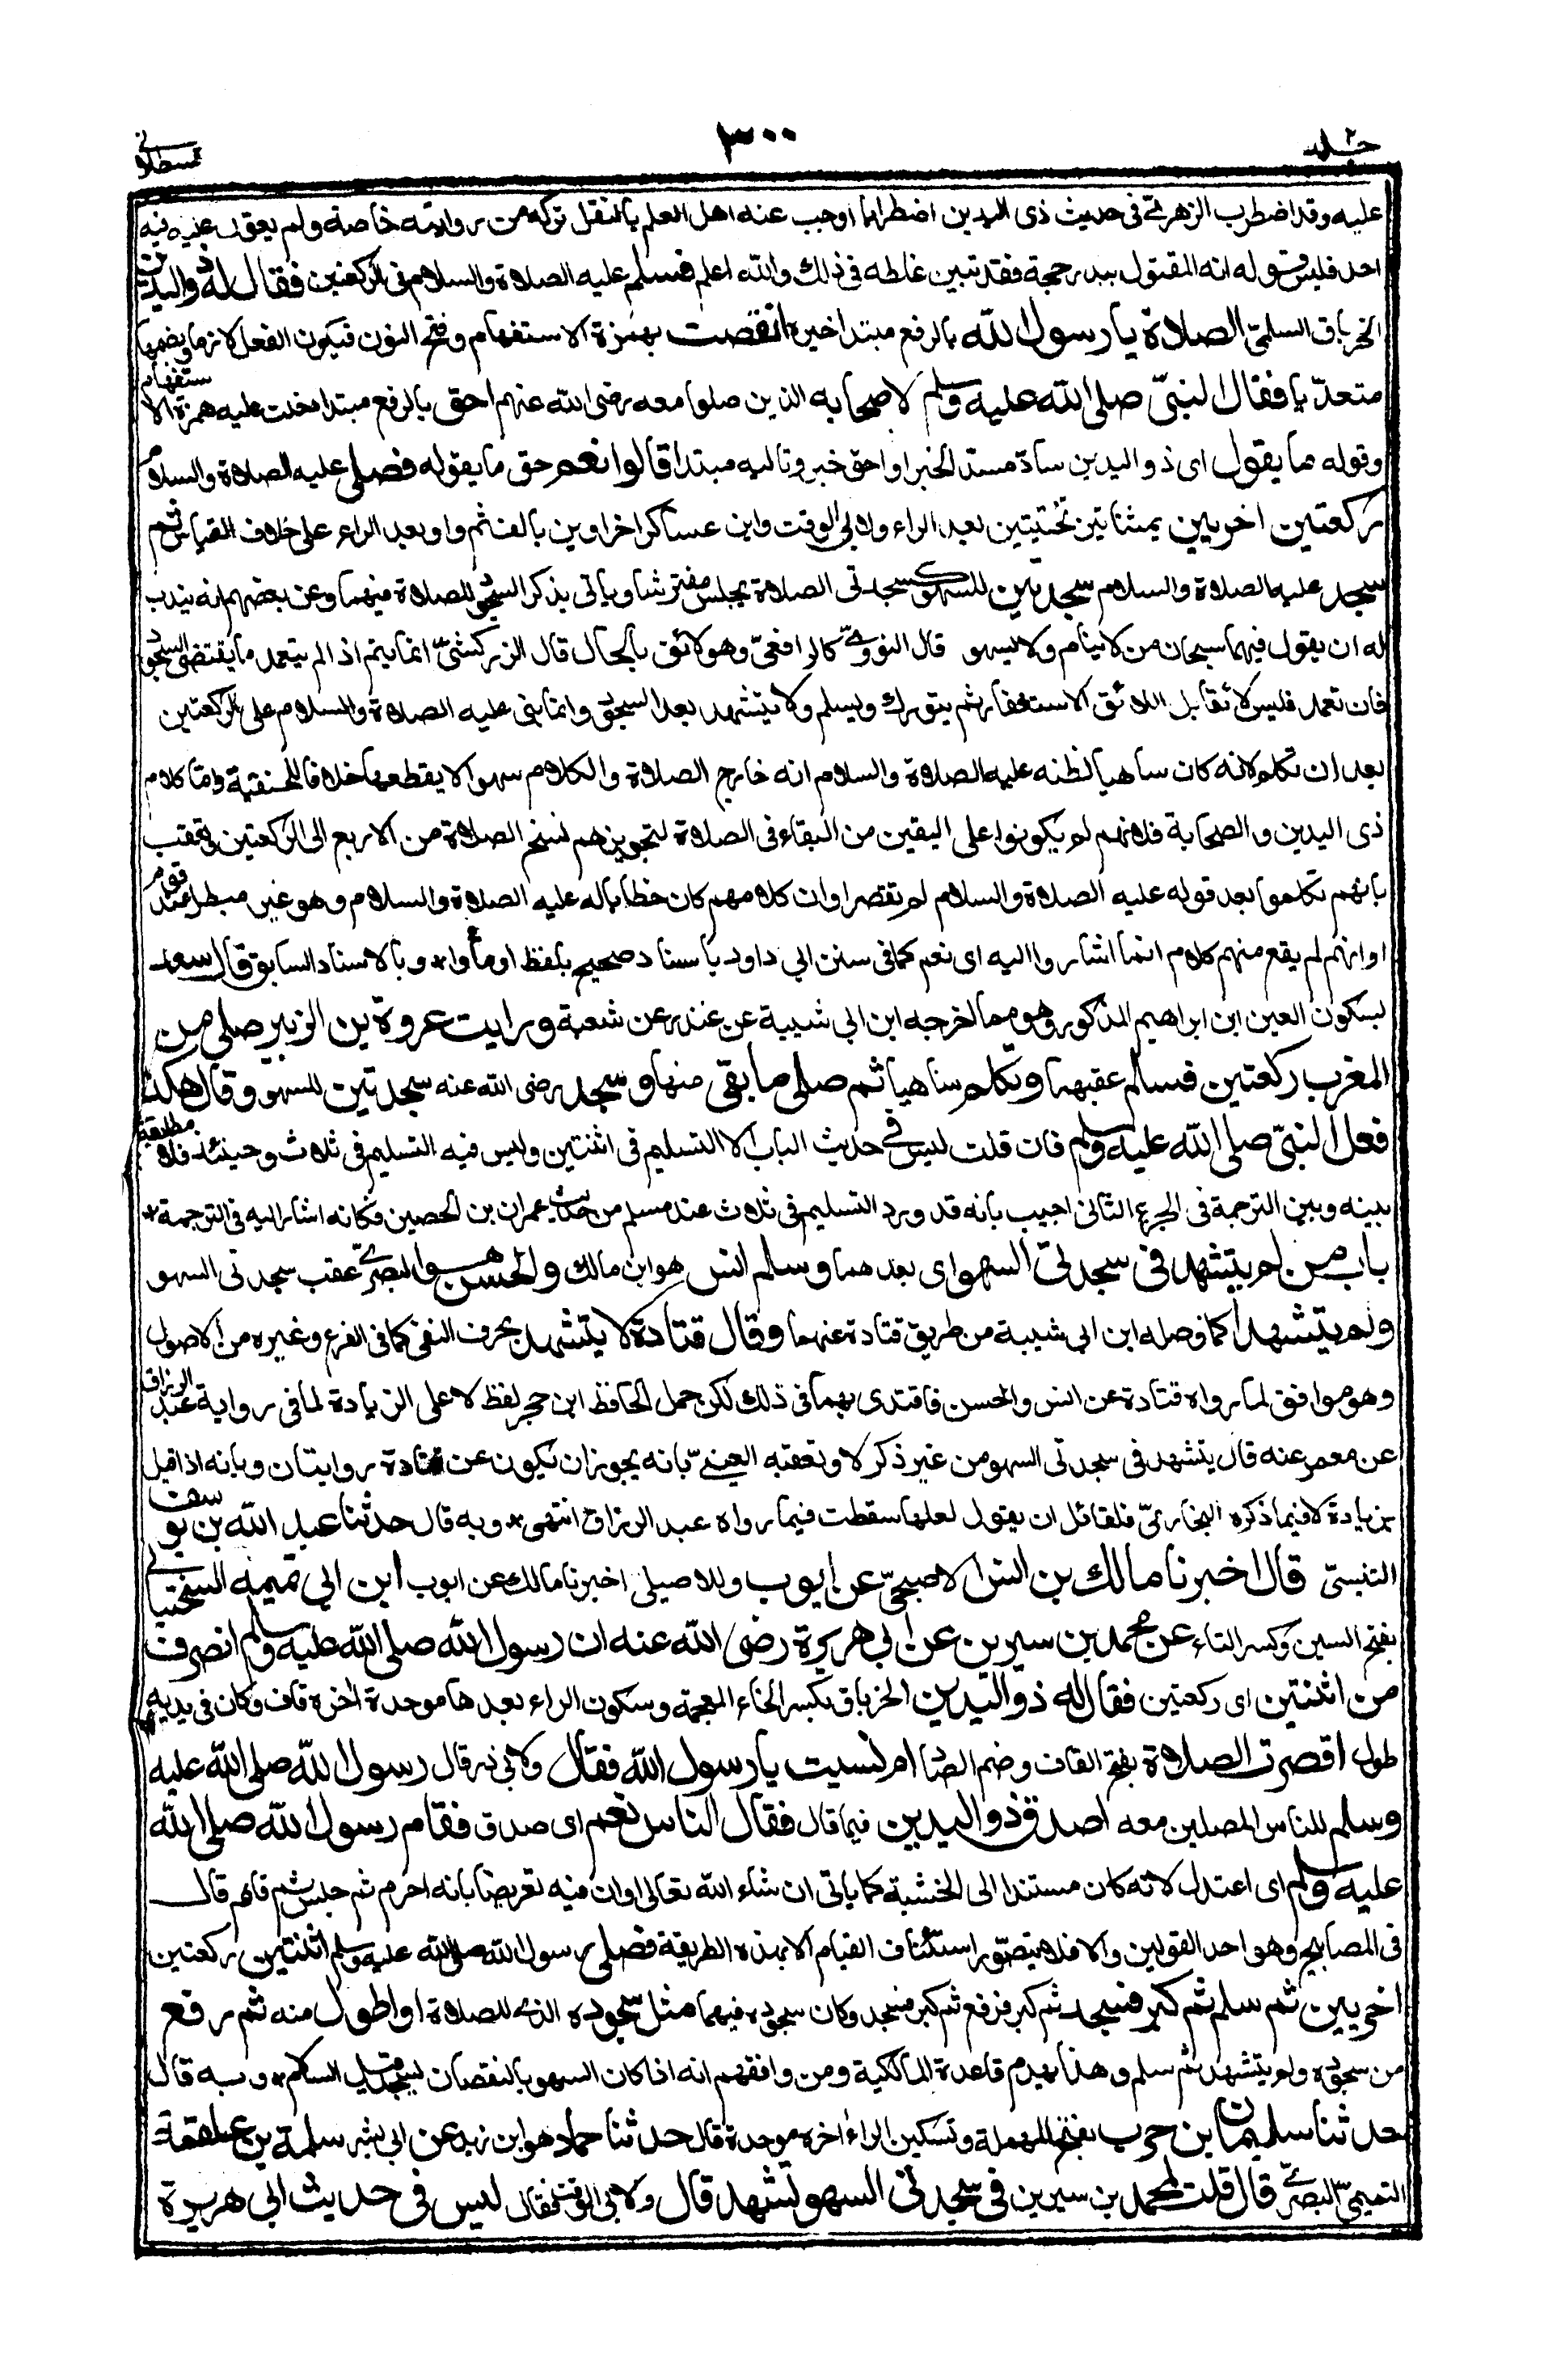 جلد ٢
٣٠٠
قسطلانی
عليه وقد اضطرب الزهرىّ فى حديث ذى اليدين اضطرابا اوجب عند اهل العلم بالنقل تركه من روايته خاصة ولم يعوّل عليه فيه
احد فليس قوله انه المقتول ببدر حجة فقد تبين غلطه فى ذلك والله اعلم فسلم عليه الصلاة والسلام فى الركعتين فقال له ذو اليدين
الخرباق السلمىّ الصلاة يا رسول الله بالرفع مبتدا خبره انقصت بهمزة الاستفهام وفتح النون فيكون الفعل لازما وبضمها
متعدّيا فقال النبىّ صلى الله عليه وسلم لاصحابه الذين صلوا معه رضى الله عنهم احق بالرفع مبتدا دخلت عليه همزة الاستفهام
وقوله ما يقول اى ذو اليدين سادّ مسدّ الخبر او احق خبر وتاليه مبتدا قالوا نعم حق ما يقوله فصلى عليه الصلاة والسلام
ركعتين اخريين بمثناتين تحتيتين بعد الراء ولابى الوقت وابن عساكر اخراوين بالف ثم واو بعد الراء على خلاف القياس ثم
سجد عليه الصلاة والسلام سجدتين للسهو كسجدتى الصلاة يجلس مفترشا وياتى بذكر السجود للصلاة فيهما وعن بعضهم انه يندب
له ان يقول فيهما سبحان من لا ينام ولا يسهو قال النووىّ كالرافعىّ وهو لائق بالحال قال الزركشىّ انما يتم اذا لم يتعمد ما يقتضى السجود
فان تعمد فليس لائقا بل اللائق الاستغفار ثم يتورك ويسلم ولا يتشهد بعد السجود وانما بنى عليه الصلاة والسلام على الركعتين
بعد ان تكلم لانه كان ساهيا لظنه عليه الصلاة والسلام انه خارج الصلاة والكلام سهوا لا يقطعها خلافا للحنفية واما كلام
ذى اليدين والصحابة فلانهم لم يكونوا على اليقين من البقاء فى الصلاة لتجويزهم نسخ الصلاة من الاربع الى الركعتين وتعقب
بانهم تكلموا بعد قوله عليه الصلاة والسلام لم تقصر او ان كلامهم كان خطابا له عليه الصلاة والسلام وهو غير مبطل عند قوم
او انهم لم يقع منهم كلام انما اشاروا اليه اى نعم كما فى سنن ابى داود باسناد صحيح بلفظ اومأوا * وبالاسناد السابق قال سعد
بسكون العين ابن ابراهيم المذكور وهو مما اخرجه ابن ابى شيبة عن غندر عن شعبة ورايت عروة بن الزبير صلى من
المغرب ركعتين فسلم عقبهما وتكلم ساهيا ثم صلى ما بقى منها وسجد رضى الله عنه سجدتين للسهو وقال هكذا
فعل النبىّ صلى الله عليه وسلم فان قلت ليس فى حديث الباب الا التسليم فى اثنتين وليس فيه التسليم فى ثلاث وحينئذ فلا مطابقة
بينه وبين الترجمة فى الجزء الثانى اجيب بانه قد ورد التسليم فى ثلاث عند مسلم من حديث عمران بن الحصين فكانه اشار اليه فى الترجمة *
باب من لم يتشهد فى سجدتى السهو اى بعدهما وسلم انس هو ابن مالك والحسن هو البصرىّ عقب سجدتى السهو
ولم يتشهدا كما وصله ابن ابى شيبة من طريق قتادة عنهما وقال قتادة لا يتشهد بحرف النفى كما فى الفرع وغيره من الاصول
وهو موافق لما رواه قتادة عن انس والحسن فاقتدى بهما فى ذلك لكن حمل الحافظ ابن حجر لفظ لا على الزيادة لما فى رواية عبد الرزاق
عن معمر عنه قال يتشهد فى سجدتى السهو من غير ذكر لا وتعقبه العينىّ بانه يجوز ان يكون عن قتادة روايتان وبانه اذا قيل
بزيادة لا فيما ذكره البخارىّ فلقائل ان يقول لعلها سقطت فيما رواه عبد الرزاق انتهى * وبه قال حدثنا عبد الله بن يوسف
التنيسىّ قال اخبرنا مالك بن انس الاصبحىّ عن ايوب وللاصيلى اخبرنا مالك عن ايوب ابن ابى تميمة السختيانى
بفتح السين وكسر التاء عن محمد بن سيرين عن ابى هريرة رضى الله عنه ان رسول الله صلى الله عليه وسلم انصرف
من اثنتين اى ركعتين فقال له ذو اليدين الخرباق بكسر الخاء المعجمة وسكون الراء بعدها موحدة اخره قاف وكان فى يديه
طول اقصرت الصلاة بفتح القاف وضم الصاد ام نسيت يا رسول الله فقال ولابى ذر قال رسول الله صلى الله عليه
وسلم للناس المصلين معه اصدق ذو اليدين فيما قال فقال الناس نعم اى صدق فقام رسول الله صلى الله
عليه وسلم اى اعتدل لانه كان مستندا الى الخشبة كما ياتى ان شاء الله تعالى او ان فيه تعريضا بانه احرم ثم جلس ثم قام قال
فى المصابيح وهو احد القولين والا فلا يتصوّر استئناف القيام الا بهذه الطريقة فصلى رسول الله صلى الله عليه وسلم اثنتين ركعتين
اخريين ثم سلم ثم كبر فسجد ثم كبر فرفع ثم كبر فسجد وكان سجوده فيهما مثل سجوده الذى للصلاة او اطول منه ثم رفع
من سجوده ولم يتشهد ثم سلم وهذا يهدم قاعدة المالكية ومن وافقهم انه اذا كان السهو بالنقصان يسجد قبل السلام * وبه قال
حدثنا سليمان بن حرب بفتح المهملة وتسكين الراء اخره موحدة قال حدثنا حماد هو ابن زيد عن ابى بشر سلمة بن علقمة
التميمىّ البصرىّ قال قلت لمحمد بن سيرين فى سجدتى السهو تشهد قال ولابى الوقت فقال ليس فى حديث ابى هريرة